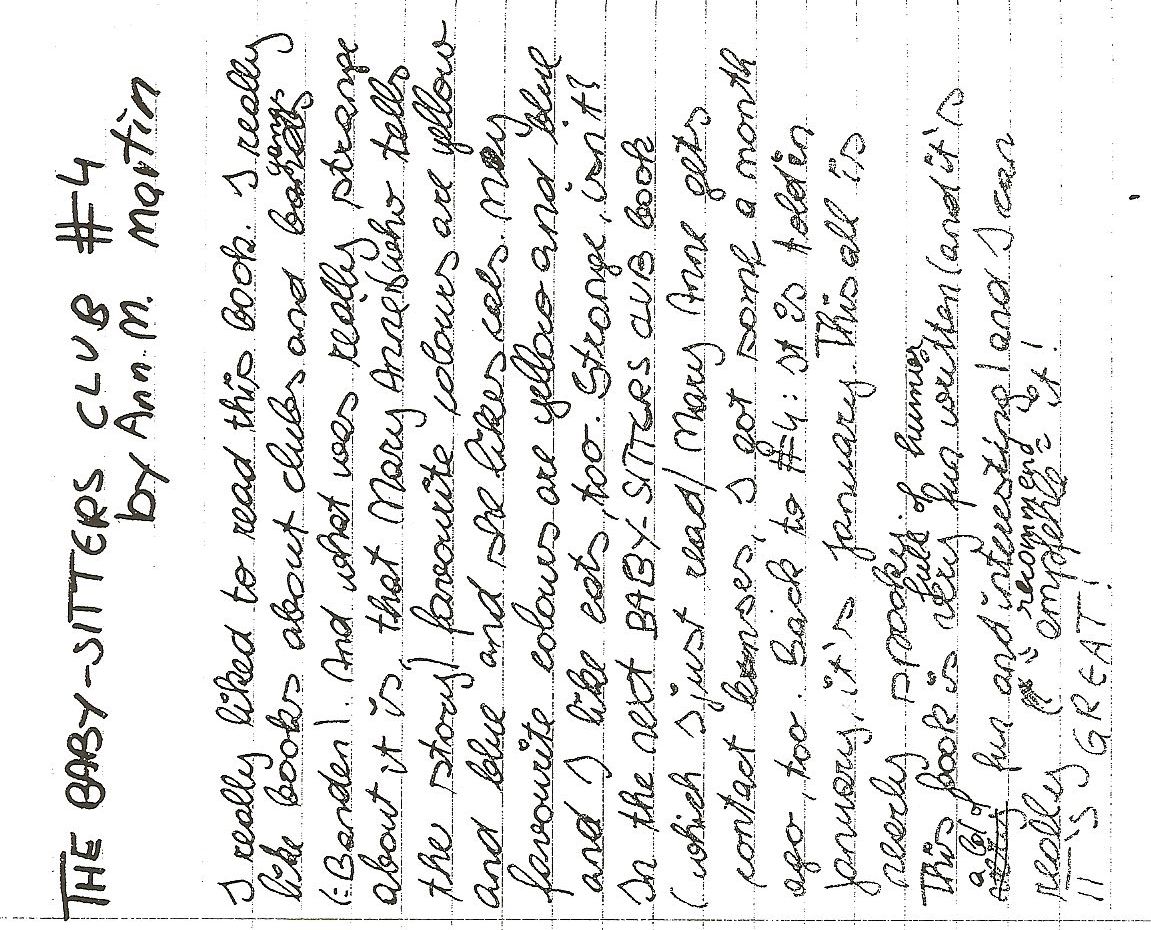 THE BABY-SITTERS CLUB #4
by Ann M. Martin
I really liked to read this book. I really
like books about clubs and gangs
(=Banden). And what was really strange
about it is, that Mary Anne (who tells
the story) favourite colours are yellow
and blue and she likes cats. My
favourite colours are yellow and blue
and I like cats, too. Strange, isn't?
In the next BABY-SITTERS CLUB book
(which I just read) Mary Anne gets
contact lenses, I got some a month
ago, too. Back to #4: It is told in
january, it's january. This all is
nearly spooky.
This book is full of humor, very fun written (and it's
a lot of fun and interesting) and I can
really (= recommend empfehle) it!
IT'S GREAT!